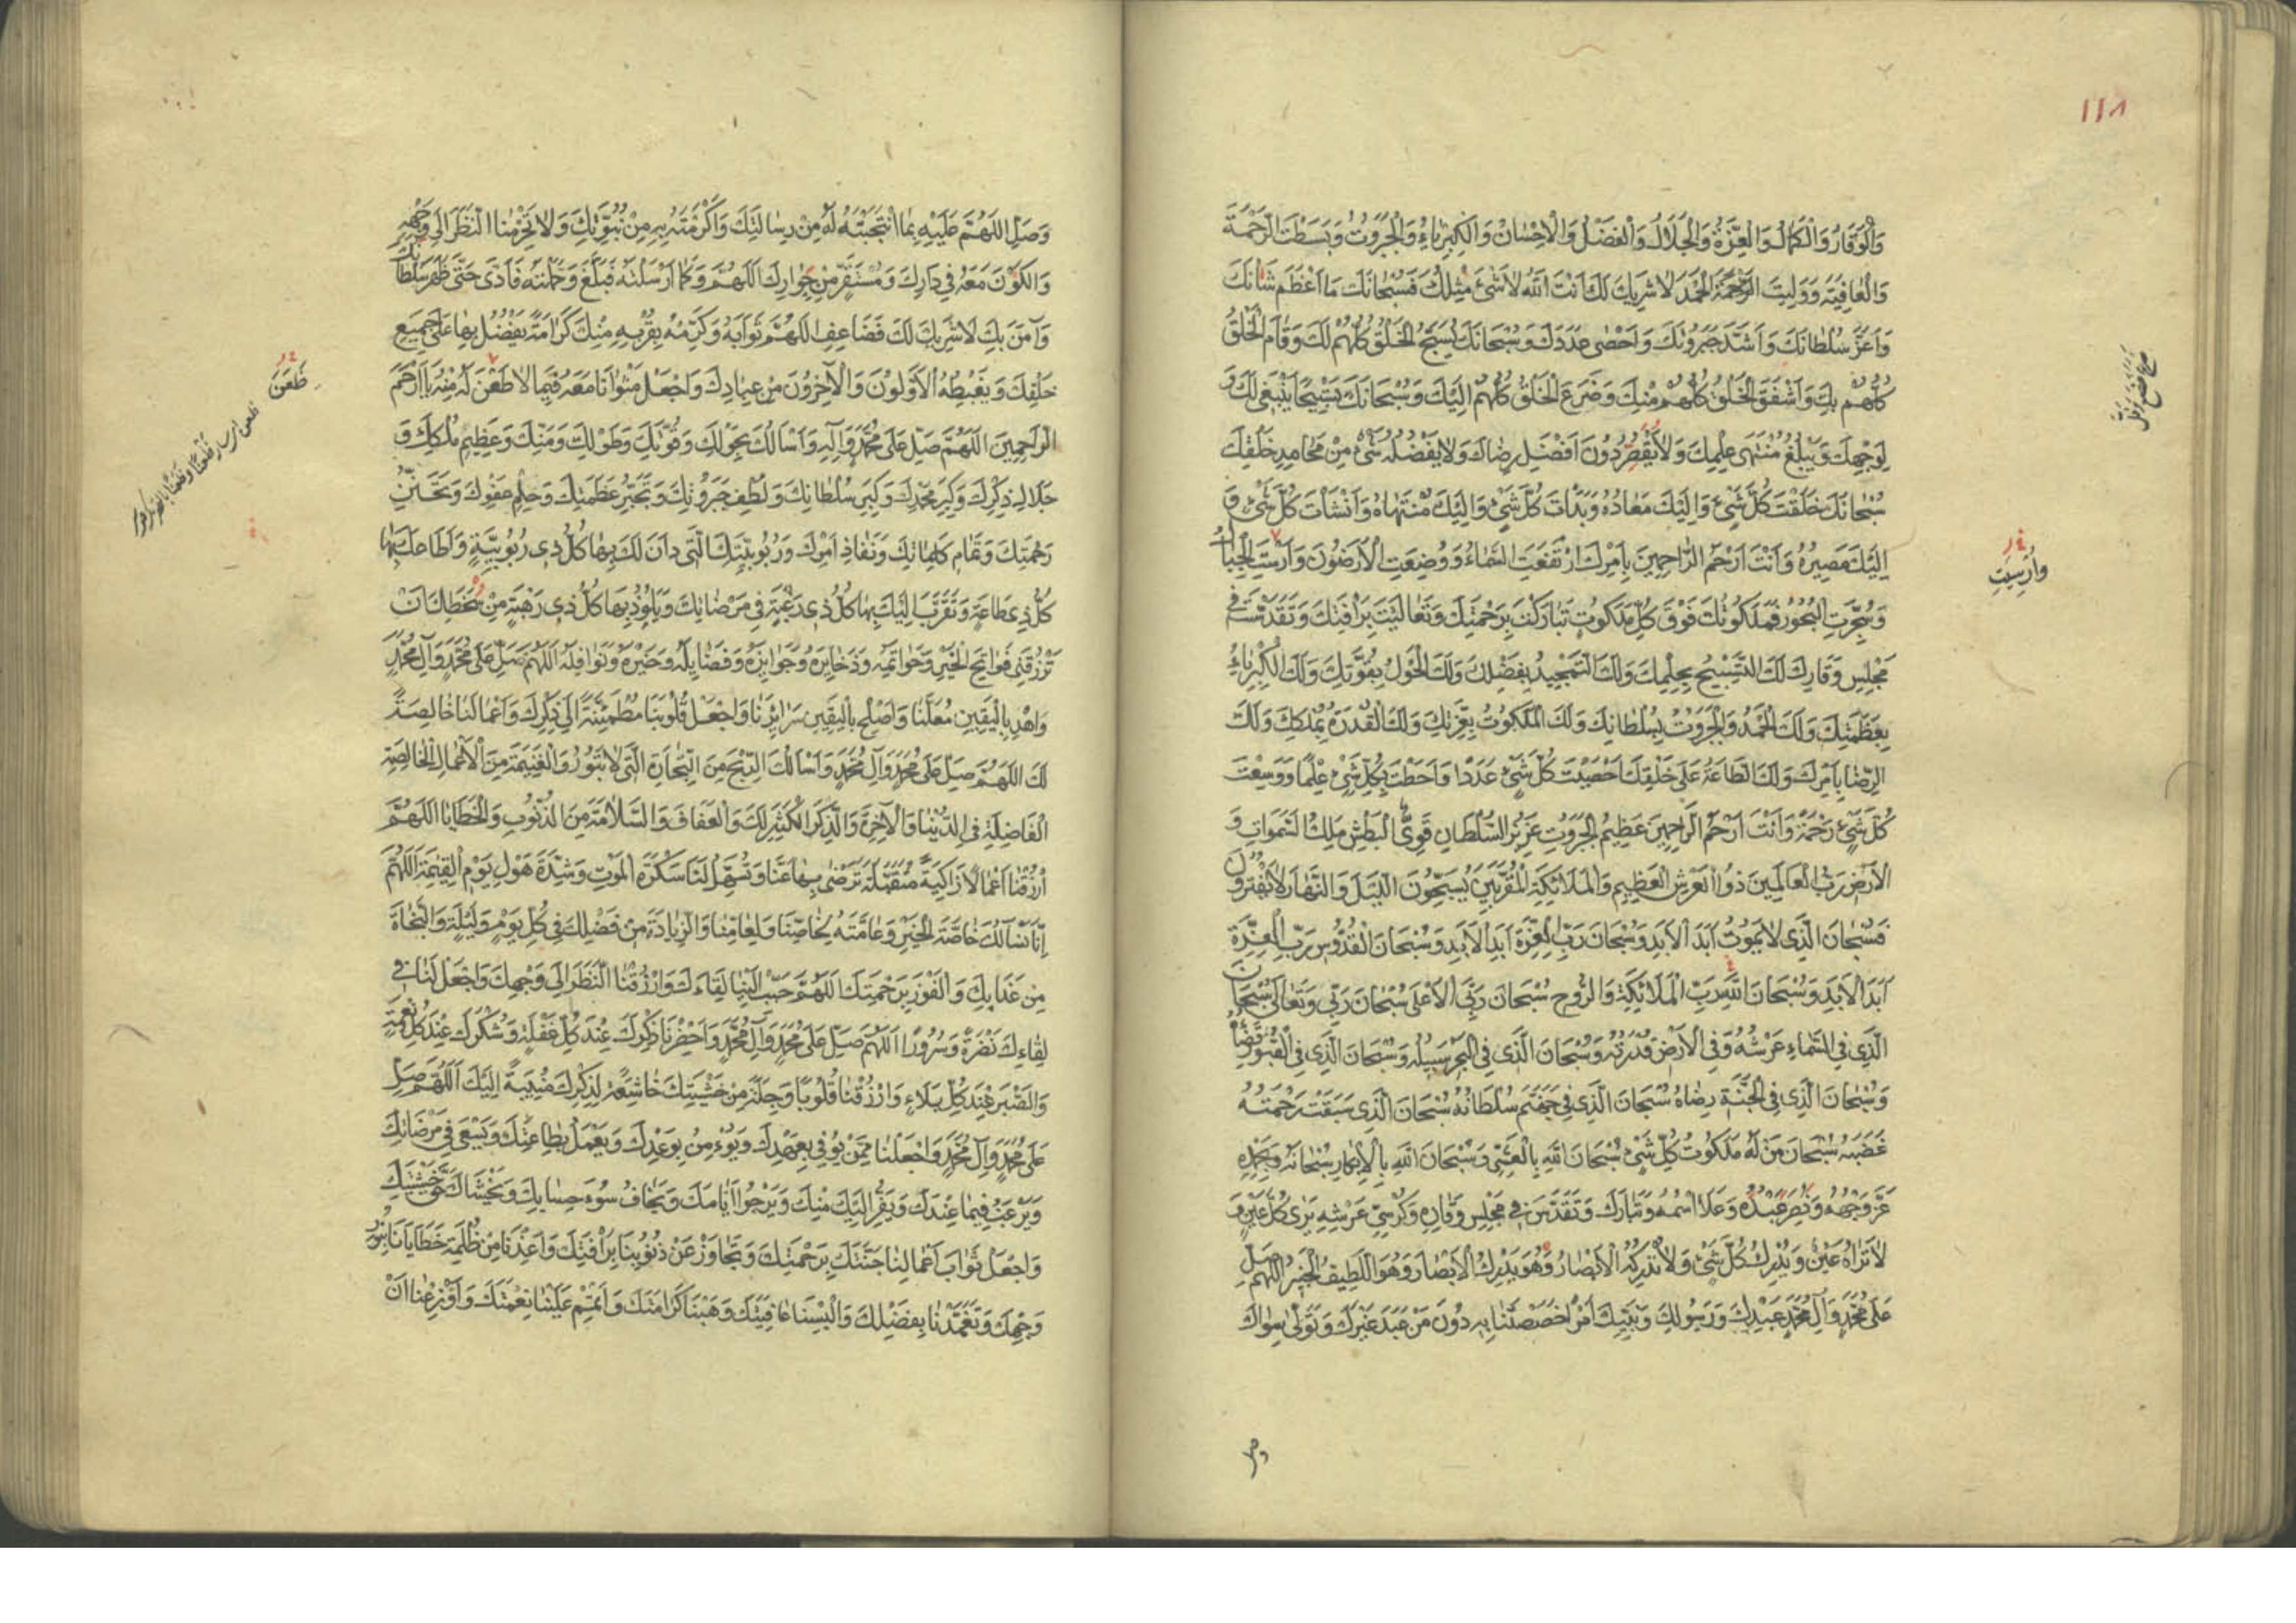 ١١٨
وَالْوَقَارُ وَالْكَمَالُ وَالْعِزَّةُ وَالْجَلَالُ وَالْفَضْلُ وَالْاِحْسَانُ وَالْكِبْرِيَاءُ وَالْجَبَرُوتُ وَبَسَطْتَ الرَّحْمَةَ
وَالْعَافِيَةَ وَوَلِيتَ الْحَمْدَ لَا شَرِيكَ لَكَ اَنْتَ اللّٰهُ لَا شَىْءَ مِثْلُكَ فَسُبْحَانَكَ مَا اَعْظَمَ شَأْنَكَ
وَاَعَزَّ سُلْطَانَكَ وَاَشَدَّ جَبَرُوتَكَ وَاَحْصٰى عَدَدَكَ وَسُبْحَانَكَ يُسَبِّحُ الْخَلْقُ كُلُّهُمْ لَكَ وَقَامَ الْخَلْقُ
كُلُّهُمْ بِكَ وَاَشْفَقَ الْخَلْقُ كُلُّهُمْ مِنْكَ وَضَرَعَ الْخَلْقُ كُلُّهُمْ اِلَيْكَ وَسُبْحَانَكَ تَسْبِيحًا يَنْبَغِى لَكَ وَ
لِوَجْهِكَ وَيَبْلُغُ مُنْتَهٰى عِلْمِكَ وَلَا يَقْصُرُ دُونَ اَفْضَلِ رِضَاكَ وَلَا يَفْضُلُهُ شَىْءٌ مِنْ مَحَامِدِ خَلْقِكَ
سُبْحَانَكَ خَلَقْتَ كُلَّ شَىْءٍ وَاِلَيْكَ مَعَادُهُ وَبَدَأْتَ كُلَّ شَىْءٍ وَاِلَيْكَ مُنْتَهَاهُ وَاَنْشَأْتَ كُلَّ شَىْءٍ وَ
اِلَيْكَ مَصِيرُهُ وَاَنْتَ اَرْحَمُ الرَّاحِمِينَ بِاَمْرِكَ ارْتَفَعَتِ السَّمَاءُ وَوُضِعَتِ الْاَرَضُونَ وَاُرْسِيَتِ الْجِبَالُ
وَاُرْسِيَتِ
وَسُجِّرَتِ الْبُحُورُ فَمَلَكُوتُكَ فَوْقَ كُلِّ مَلَكُوتٍ تَبَارَكْتَ بِرَحْمَتِكَ وَتَعَالَيْتَ بِرَأْفَتِكَ وَتَقَدَّسْتَ فِى
مَجْلِسِ وَقَارِكَ لَكَ التَّسْبِيحُ بِحِلْمِكَ وَلَكَ التَّمْجِيدُ بِفَضْلِكَ وَلَكَ الْحَوْلُ بِقُوَّتِكَ وَلَكَ الْكِبْرِيَاءُ
بِعَظَمَتِكَ وَلَكَ الْحَمْدُ وَالْجَبَرُوتُ بِسُلْطَانِكَ وَلَكَ الْمَلَكُوتُ بِعِزَّتِكَ وَلَكَ الْقُدْرَةُ بِمُلْكِكَ وَلَكَ
الرِّضَا بِاَمْرِكَ وَلَكَ الطَّاعَةُ عَلٰى خَلْقِكَ اَحْصَيْتَ كُلَّ شَىْءٍ عَدَدًا وَاَحَطْتَ بِكُلِّ شَىْءٍ عِلْمًا وَوَسِعْتَ
كُلَّ شَىْءٍ رَحْمَةً وَاَنْتَ اَرْحَمُ الرَّاحِمِينَ عَظِيمُ الْجَبَرُوتِ عَزِيزُ السُّلْطَانِ قَوِىُّ الْبَطْشِ مَلِكُ السَّمٰوَاتِ وَ
الْاَرْضِ رَبُّ الْعَالَمِينَ ذُو الْعَرْشِ الْعَظِيمِ وَالْمَلَائِكَةِ الْمُقَرَّبِينَ يُسَبِّحُونَ اللَّيْلَ وَالنَّهَارَ لَا يَفْتُرُونَ
فَسُبْحَانَ الَّذِى لَا يَمُوتُ اَبَدَ الْاَبَدِ وَسُبْحَانَ رَبِّ الْعِزَّةِ اَبَدَ الْاَبَدِ وَسُبْحَانَ الْقُدُّوسِ رَبِّ الْعِزَّةِ
اَبَدَ الْاَبَدِ وَسُبْحَانَ اللّٰهِ رَبِّ الْمَلَائِكَةِ وَالرُّوحِ سُبْحَانَ رَبِّىَ الْاَعْلٰى سُبْحَانَ رَبِّى وَتَعَالٰى سُبْحَانَ
الَّذِى فِى السَّمَاءِ عَرْشُهُ وَفِى الْاَرْضِ قُدْرَتُهُ وَسُبْحَانَ الَّذِى فِى الْبَحْرِ سَبِيلُهُ وَسُبْحَانَ الَّذِى فِى الْقُبُورِ قَضَاؤُهُ
وَسُبْحَانَ الَّذِى فِى الْجَنَّةِ رِضَاهُ سُبْحَانَ الَّذِى فِى جَهَنَّمَ سُلْطَانُهُ سُبْحَانَ الَّذِى سَبَقَتْ رَحْمَتُهُ
غَضَبَهُ سُبْحَانَ مَنْ لَهُ مَلَكُوتُ كُلِّ شَىْءٍ سُبْحَانَ اللّٰهِ بِالْعَشِىِّ وَسُبْحَانَ اللّٰهِ بِالْاِبْكَارِ سُبْحَانَهُ وَبِحَمْدِهِ
عَزَّ وَجْهُهُ وَنَصَرَ عَبْدَهُ وَعَلَا اسْمُهُ وَتَبَارَكَ وَتَقَدَّسَ فِى مَجْلِسِ وَقَارِهِ وَكُرْسِىِّ عَرْشِهِ يَرٰى كُلَّ عَيْنٍ وَ
لَا تَرَاهُ عَيْنٌ وَيُدْرِكُ كُلَّ شَىْءٍ وَلَا تُدْرِكُهُ الْاَبْصَارُ وَهُوَ يُدْرِكُ الْاَبْصَارَ وَهُوَ اللَّطِيفُ الْخَبِيرُ اَللّٰهُمَّ صَلِّ
عَلٰى مُحَمَّدٍ وَآلِ مُحَمَّدٍ عَبْدِكَ وَرَسُولِكَ وَنَبِيِّكَ اَمْرًا خَصَصْتَنَا بِهِ دُونَ مَنْ عَبَدَ غَيْرَكَ وَتَوَلّٰى سِوَاكَ
وَصَلِّ اللّٰهُمَّ عَلَيْهِ بِمَا انْتَجَبْتَهُ لَهُ مِنْ رِسَالَتِكَ وَاَكْرَمْتَهُ بِهِ مِنْ نُبُوَّتِكَ وَلَا تَحْرِمْنَا النَّظَرَ اِلٰى وَجْهِهِ
وَالْكَوْنَ مَعَهُ فِى دَارِكَ وَمُسْتَقَرٍّ مِنْ جِوَارِكَ اَللّٰهُمَّ وَكَمَا اَرْسَلْتَهُ فَبَلَّغَ وَحَمَّلْتَهُ فَاَدّٰى حَتّٰى ظَهَرَ سُلْطَانُكَ
وَآمَنَ بِكَ لَا شَرِيكَ لَكَ فَضَاعِفِ اللّٰهُمَّ ثَوَابَهُ وَكَرِّمْهُ بِقُرْبِهِ مِنْكَ كَرَامَةً يَفْضُلُ بِهَا عَلٰى جَمِيعِ
خَلْقِكَ وَيَغْبِطُهُ الْاَوَّلُونَ وَالْآخِرُونَ مِنْ عِبَادِكَ وَاجْعَلْ مَثْوَانَا مَعَهُ فِيمَا لَا ظَعْنَ لَهُ مِنْهُ يَا اَرْحَمَ
ظَعَنَ
الرَّاحِمِينَ اَللّٰهُمَّ صَلِّ عَلٰى مُحَمَّدٍ وَآلِهِ وَاَسْأَلُكَ بِحَوْلِكَ وَقُوَّتِكَ وَطَوْلِكَ وَمَنِّكَ وَعَظِيمِ مُلْكِكَ وَ
جَلَالِ ذِكْرِكَ وَكِبَرِ مَجْدِكَ وَكِبَرِ سُلْطَانِكَ وَلُطْفِ جَبَرُوتِكَ وَتَجَبُّرِ عَظَمَتِكَ وَحِلْمِ عَفْوِكَ وَتَحَنُّنِ
رَحْمَتِكَ وَتَمَامِ كَلِمَاتِكَ وَنَفَاذِ اَمْرِكَ وَرُبُوبِيَّتِكَ الَّتِى دَانَ لَكَ بِهَا كُلُّ ذِى رُبُوبِيَّةٍ وَاَطَاعَكَ بِهَا
كُلُّ ذِى طَاعَةٍ وَتَقَرَّبَ اِلَيْكَ بِهَا كُلُّ ذِى رَغْبَةٍ فِى مَرْضَاتِكَ وَيَلُوذُ بِهَا كُلُّ ذِى رَهْبَةٍ مِنْ سَخَطِكَ اَنْ
تَرْزُقَنِى فَوَاتِحَ الْخَيْرِ وَخَوَاتِمَهُ وَذَخَايِرَهُ وَجَوَائِزَهُ وَفَضَايِلَهُ وَخَيْرَهُ وَنَوَافِلَهُ اَللّٰهُمَّ صَلِّ عَلٰى مُحَمَّدٍ وَآلِ مُحَمَّدٍ
وَاهْدِ بِالْيَقِينِ مُعْلَنَنَا وَاَصْلِحْ بِالْيَقِينِ سَرَائِرَنَا وَاجْعَلْ قُلُوبَنَا مُطْمَئِنَّةً اِلٰى ذِكْرِكَ وَاَعْمَالَنَا خَالِصَةً
لَكَ اَللّٰهُمَّ صَلِّ عَلٰى مُحَمَّدٍ وَآلِ مُحَمَّدٍ وَاَسْأَلُكَ الرِّبْحَ مِنَ التِّجَارَةِ الَّتِى لَا تَبُورُ وَالْغَنِيمَةَ مِنَ الْاَعْمَالِ الْخَالِصَةِ
الْفَاضِلَةِ فِى الدُّنْيَا وَالْآخِرَةِ وَالذِّكْرَ الْكَثِيرَ لَكَ وَالْعَفَافَ وَالسَّلَامَةَ مِنَ الذُّنُوبِ وَالْخَطَايَا اَللّٰهُمَّ
ارْزُقْنَا اَعْمَالًا زَاكِيَةً مُتَقَبَّلَةً تَرْضٰى بِهَا عَنَّا وَتُسَهِّلُ لَنَا سَكْرَةَ الْمَوْتِ وَشِدَّةَ هَوْلِ يَوْمِ الْقِيٰمَةِ اَللّٰهُمَّ
اِنَّا نَسْأَلُكَ خَاصَّةَ الْخَيْرِ وَعَامَّتَهُ لِخَاصِّنَا وَلِعَامِّنَا وَالزِّيَادَةَ مِنْ فَضْلِكَ فِى كُلِّ يَوْمٍ وَلَيْلَةٍ وَالنَّجَاةَ
مِنْ عَذَابِكَ وَالْفَوْزَ بِرَحْمَتِكَ اَللّٰهُمَّ حَبِّبْ اِلَيْنَا لِقَاءَكَ وَارْزُقْنَا النَّظَرَ اِلٰى وَجْهِكَ وَاجْعَلْ لَنَا فِى
لِقَاءِكَ نَضْرَةً وَسُرُورًا اَللّٰهُمَّ صَلِّ عَلٰى مُحَمَّدٍ وَآلِ مُحَمَّدٍ وَاَحْضِرْنَا ذِكْرَكَ عِنْدَ كُلِّ غَفْلَةٍ وَشُكْرَكَ عِنْدَ كُلِّ نِعْمَةٍ
وَالصَّبْرَ عِنْدَ كُلِّ بَلَاءٍ وَارْزُقْنَا قُلُوبًا وَجِلَةً مِنْ خَشْيَتِكَ خَاشِعَةً لِذِكْرِكَ مُنِيبَةً اِلَيْكَ اَللّٰهُمَّ صَلِّ
عَلٰى مُحَمَّدٍ وَآلِ مُحَمَّدٍ وَاجْعَلْنَا مِمَّنْ يُوفِى بِعَهْدِكَ وَيُؤْمِنُ بِوَعْدِكَ وَيَعْمَلُ بِطَاعَتِكَ وَيَسْعٰى فِى مَرْضَاتِكَ
وَيَرْغَبُ فِيمَا عِنْدَكَ وَيَفِرُّ اِلَيْكَ مِنْكَ وَيَرْجُوا اَيَّامَكَ وَيَخَافُ سُوءَ حِسَابِكَ وَيَخْشَاكَ حَقَّ خَشْيَتِكَ
وَاجْعَلْ ثَوَابَ اَعْمَالِنَا جَنَّتَكَ بِرَحْمَتِكَ وَتَجَاوَزْ عَنْ ذُنُوبِنَا بِرَأْفَتِكَ وَاَعِذْنَا مِنْ ظُلْمَةِ خَطَايَانَا بِنُورِ
وَجْهِكَ وَتَغَمَّدْنَا بِفَضْلِكَ وَاَلْبِسْنَا عَافِيَتَكَ وَهَبْنَا كَرَامَتَكَ وَاَتْمِمْ عَلَيْنَا نِعْمَتَكَ وَاَوْزِعْنَا اَنْ